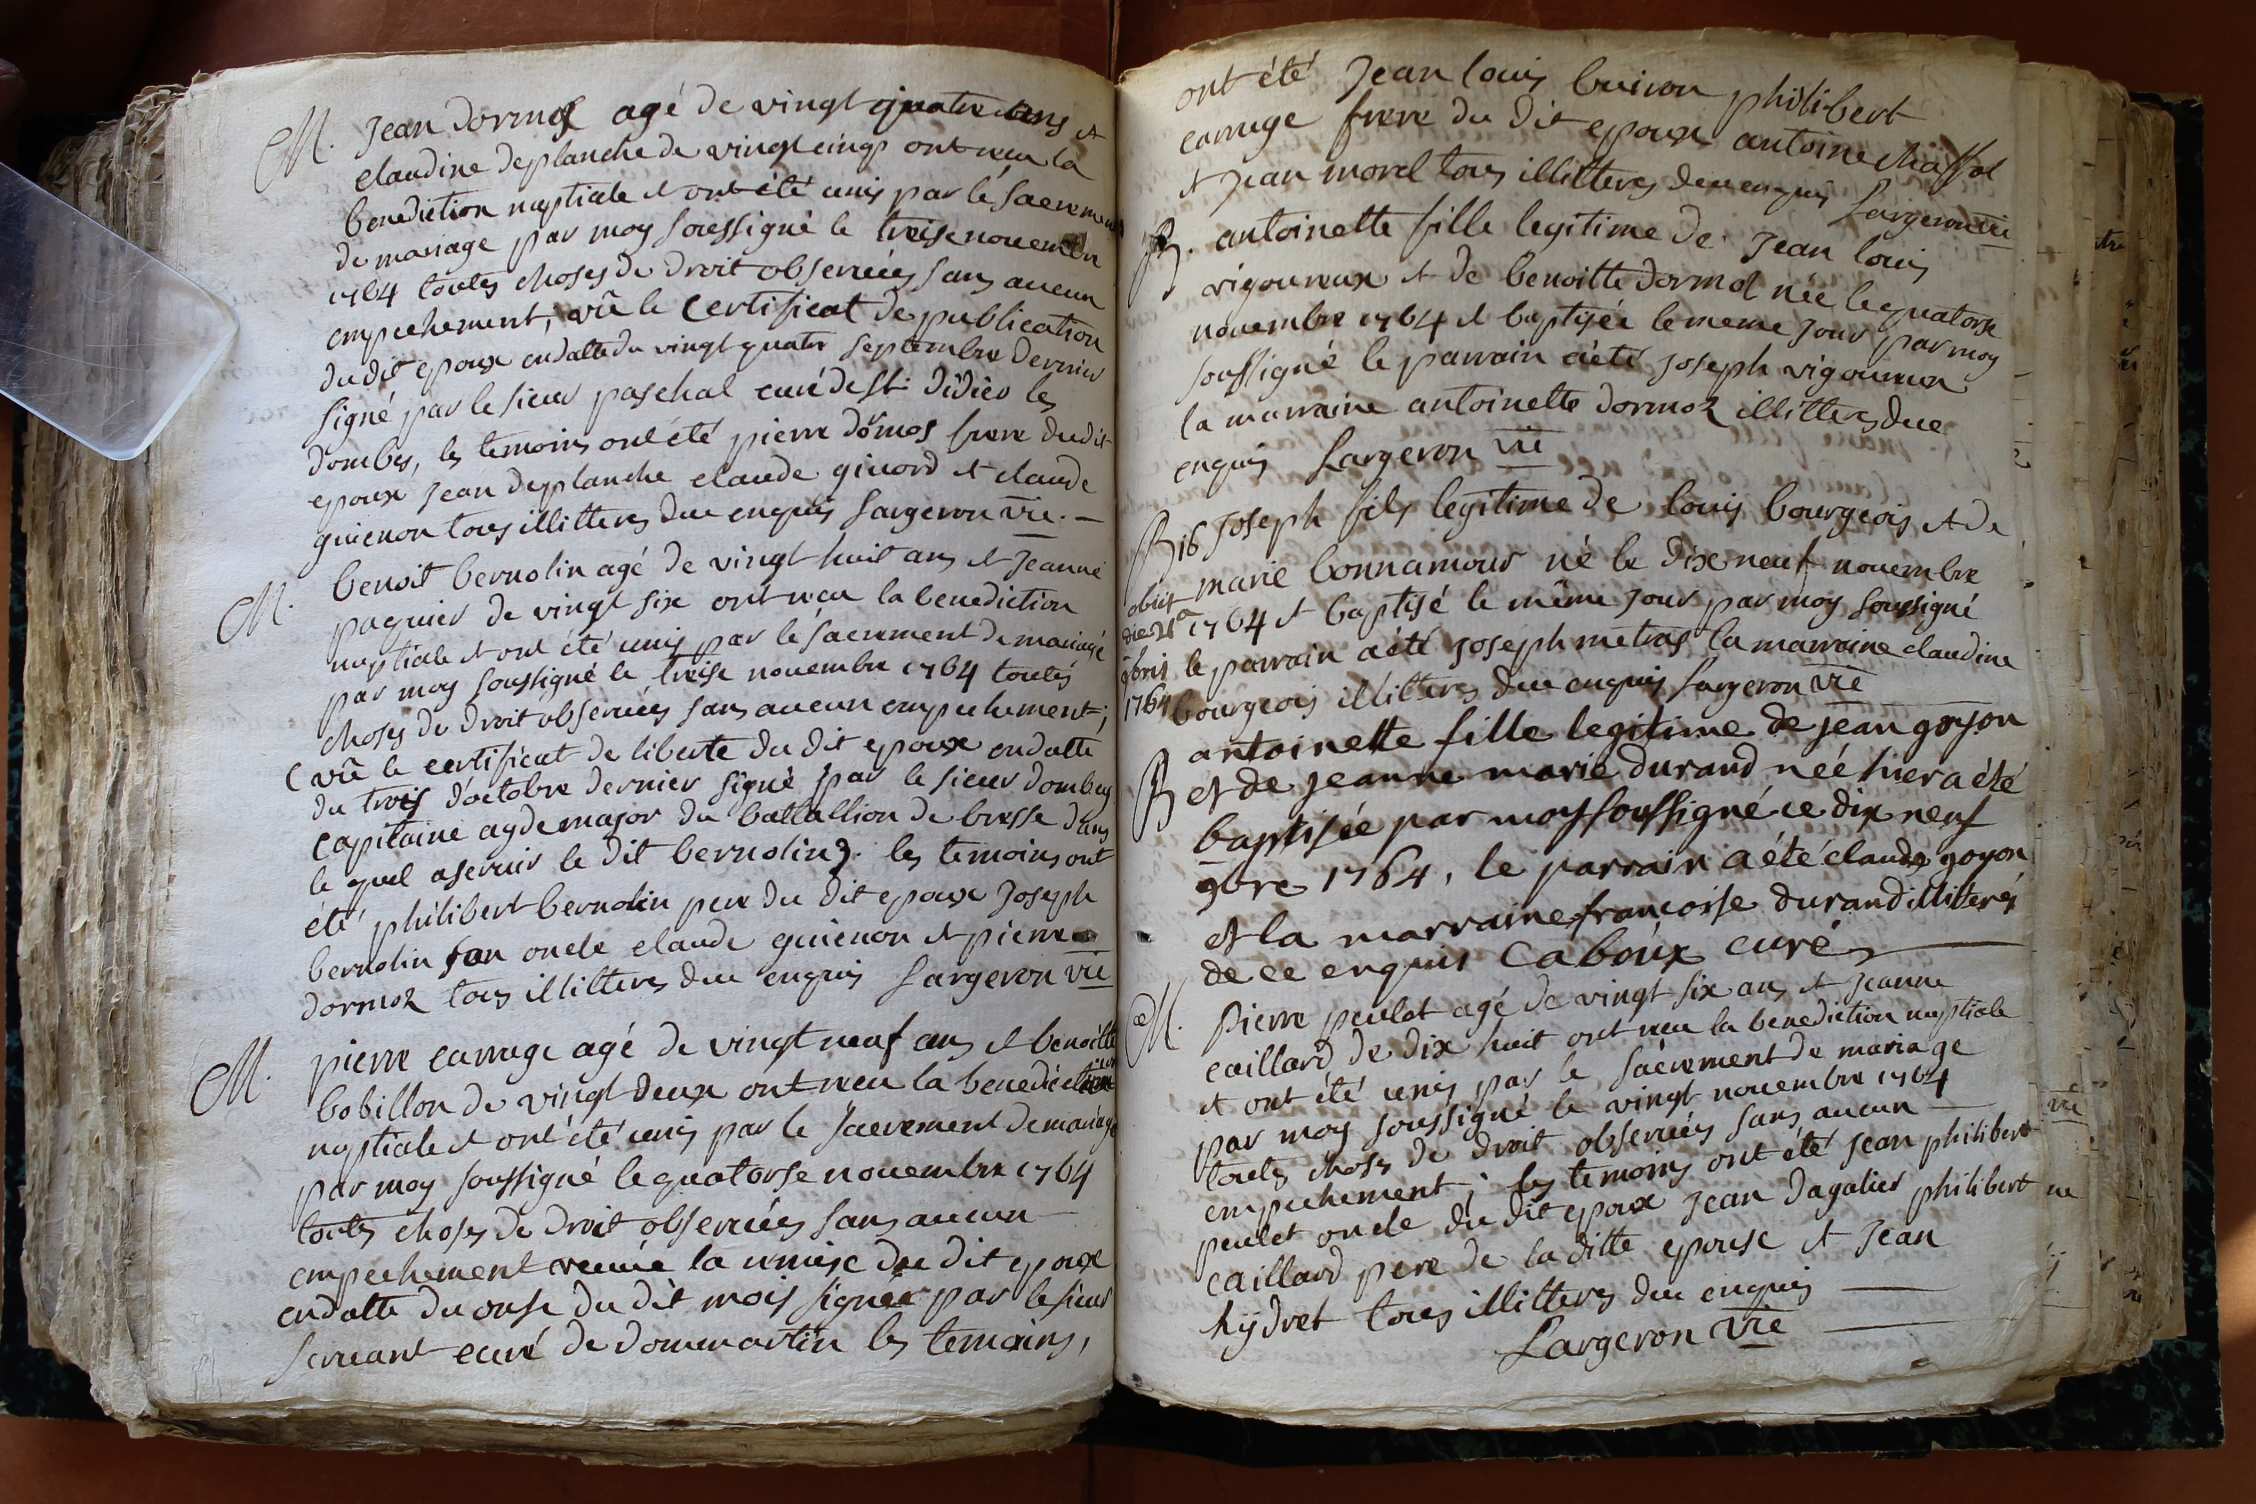 M. Jean dormoz agé de vingt quatre ans et
claudine deplanche de vingt cinq ont reçu la
benediction nuptiale et ont été unis par le sacrement
de mariage par moy soussigné le treise novembre
1764 toutes choses de droit observées sans aucun
empechement, vû le certificat de publication
du dit epoux en datte du vingt quatre septembre dernier
signé par le sieur paschal curé de st. didier les
dombes, les temoins ont été pierre dormos frere du dit
epoux Jean deplanche claude givord et claude
guienon tous illitteres de ce enquis Largeron vic. —
M. benoit bernolin agé de vingt huit ans et Jeanne
paquier de vingt six ont reçu la benediction
nuptiale et ont été unis par le sacrement de mariage
par moy soussigné le treise novembre 1764 toutes
choses de droit observées sans aucun empechement;
(vû le certificat de liberte du dit epoux en datte
du trois d'octobre dernier signé par le sieur dombey
capitaine ayde major du battallion de bresse dans
le quel a servir le dit bernolin). les temoins ont
été philibert bernolin pere du dit epoux Joseph
bernolin son oncle claude guienon et pierre
dormoz tous illitteres de ce enquis Largeron vic
M. pierre carruge agé de vingt neuf ans et benoitte
bobillon de vingt deux ont reçu la benediction
nuptiale et ont été unis par le sacrement de mariage
par moy soussigné le quatorse novembre 1764
toutes choses de droit observées sans aucun
empechement reçüe la remise du dit epoux
en datte du onse du dit mois signée par le sieur
servant curé de dommartin les temoins,
ont été Jean louis buiron philibert
carruge frere du dit epoux antoine chassol
et Jean morel tous illitteres de ce enquis Largeron vic
B. antoinette fille legitime de Jean louis
vigoureux et de benoitte dormoz née le quatorse
novembre 1764 et baptisée le meme jour par moy
soussigné le parrain a été Joseph vigoureux
la marraine antoinette dormoz illitteres de ce
enquis Largeron vic
B 16 Joseph fils legitime de louis bourgeois et de
marie bonnamour né le dix neuf novembre
1764 et baptisé le même jour par moy soussigné
le parrain a été Joseph metras la marraine claudine
bourgeois illitteres de ce enquis Largeron vic
obiit
die 21a
9bris
1764
B antoinette fille legitime de jean goyon
et de jeanne marie durand née hier a été
baptisée par moy soussigné ce dix neuf
9bre 1764, le parrain a été claude goyon
et la marraine françoise durand illiterés
de ce enquis Caboux curé
M. Pierre peulet agé de vingt six ans et Jeanne
caillard de dix huit ont reçu la benediction nuptiale
et ont été unis par le sacrement de mariage
par moy soussigné le vingt novembre 1764
toutes choses de droit observées sans aucun —
empechement; les temoins ont été Jean philibert
peulet oncle du dit epoux Jean dagalier philibert
caillard pere de la ditte epouse et Jean
hÿdret tous illitteres de ce enquis —
Largeron vic —